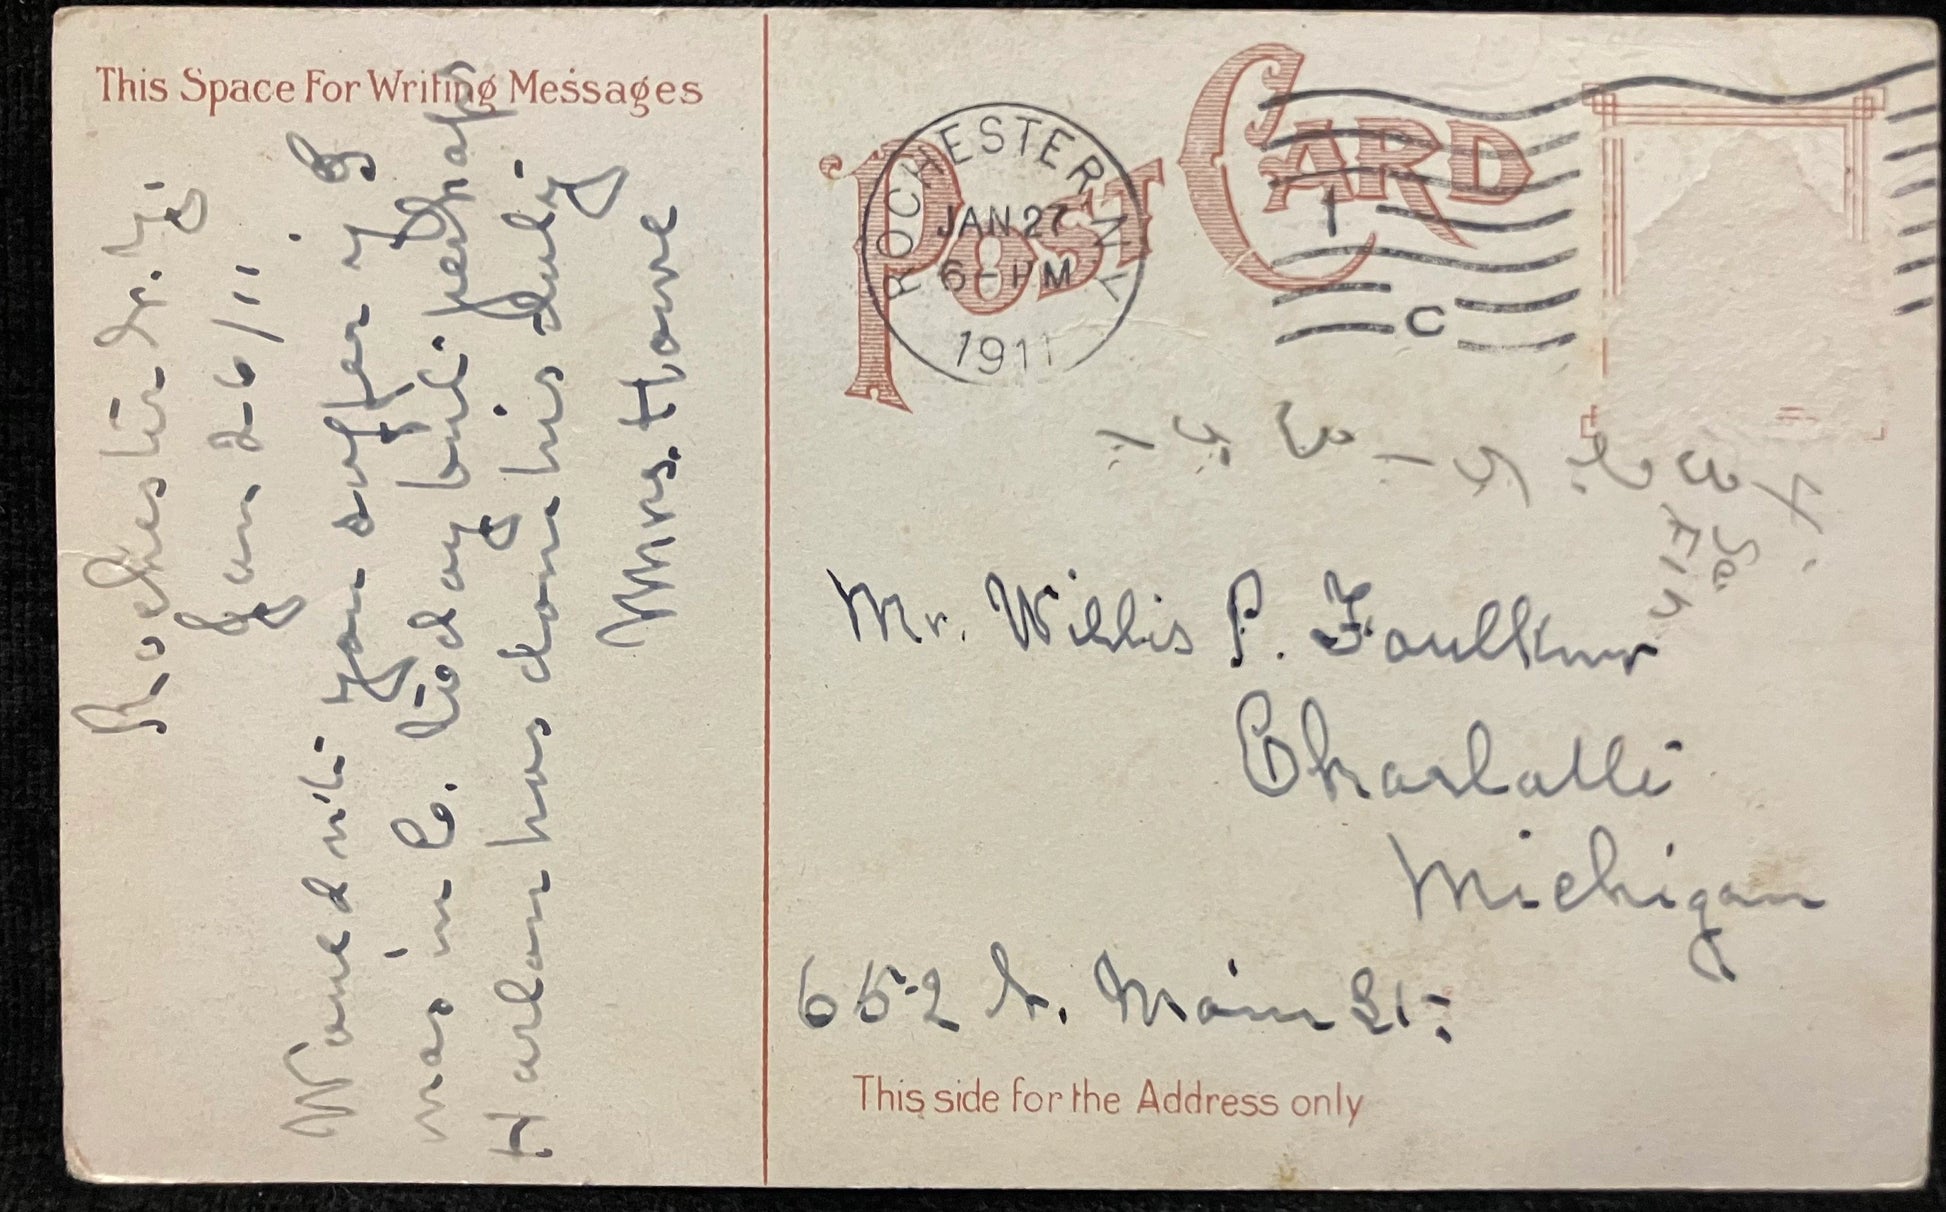 This Space For Writing Messages
Rochester N. Y.
Jan 26/11.
Would write you sooner if
was in Co. today but perhaps
Harlan has done his duty
Mrs. Howe
POST CARD
ROCHESTER N.Y.
JAN 27
6-PM
1911
1
C
Mr. Willis P. Faulkner
Charlotte
Michigan
652 N. Main St.
This side for the Address only